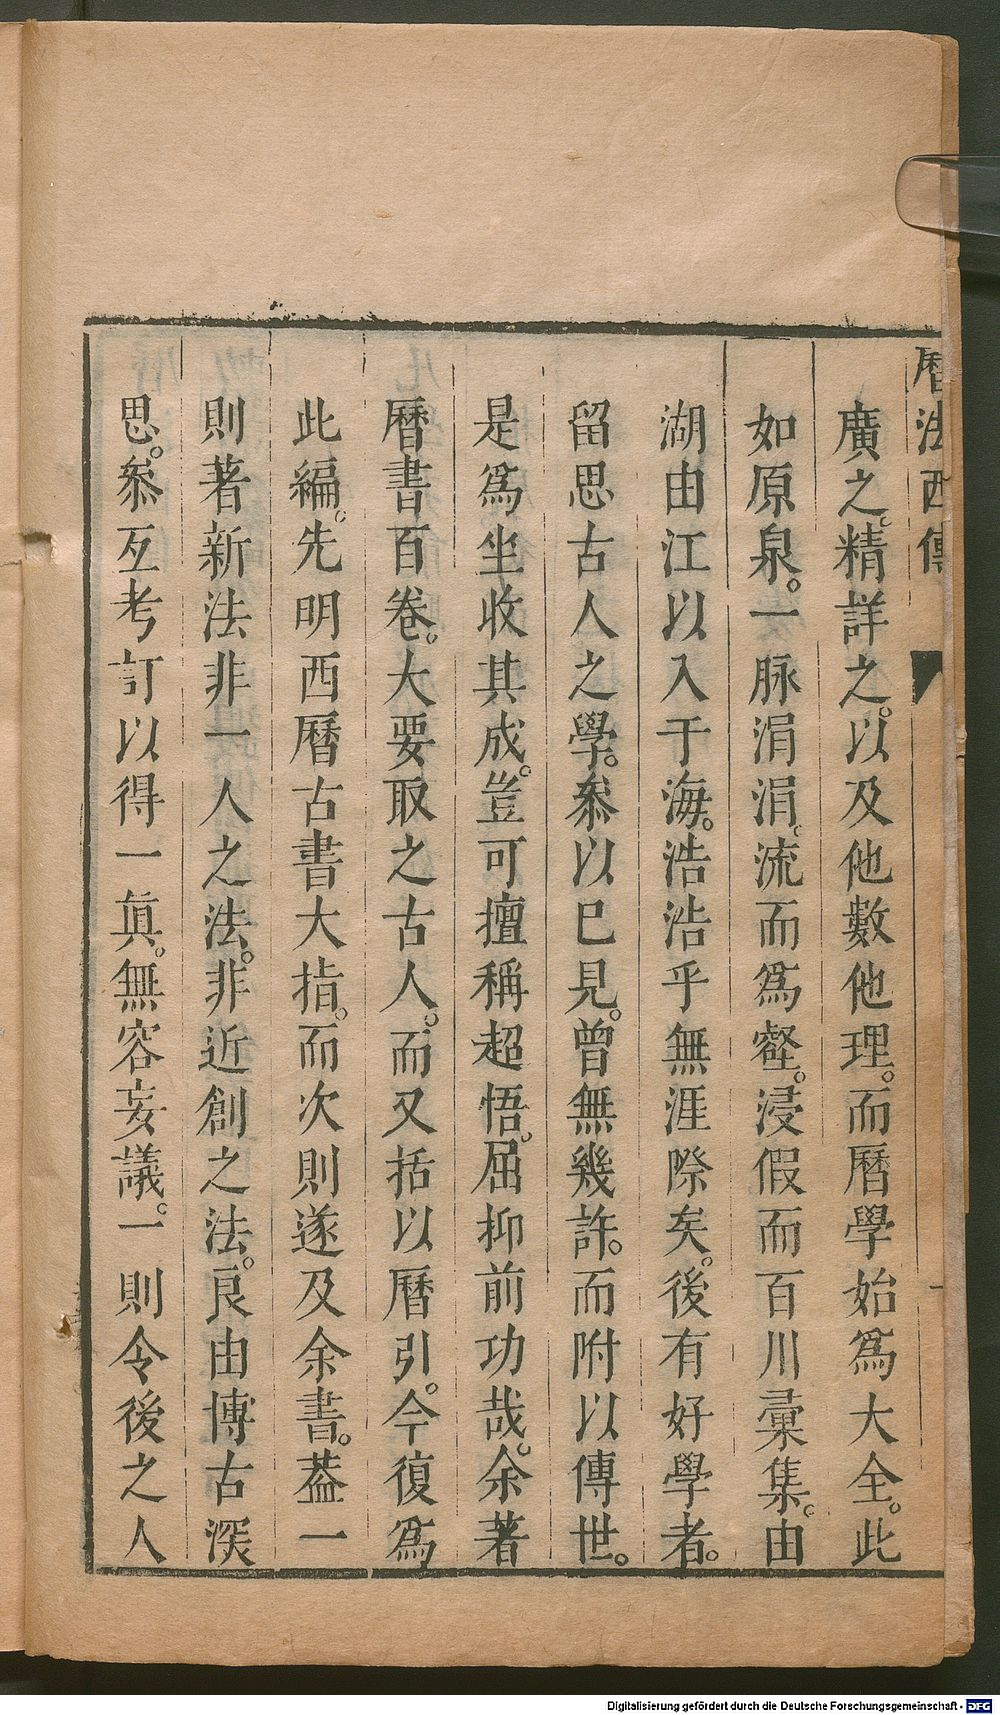 曆法西傳
廣之。精詳之。以及他數他理。而曆學始爲大全。此
如原泉。一脉涓涓。流而爲壑。浸假而百川彙集。由
湖由江以入于海。浩浩乎無涯際矣。後有好學者。
留思古人之學。叅以已見。曾無幾許。而附以傳世。
是爲坐收其成。豈可擅稱超悟。屈抑前功哉。余著
曆書百卷。大要取之古人。而又括以曆引。今復爲
此編。先明西曆古書大指。而次則遂及余書。葢一
則著新法非一人之法。非近創之法。良由博古深
思。叅互考訂以得一眞。無容妄議。一則令後之人
一
Digitalisierung gefördert durch die Deutsche Forschungsgemeinschaft - DFG